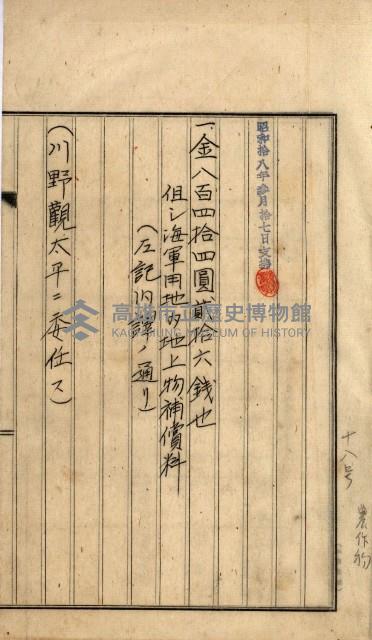 昭和拾八年參月拾七日支拂
一金八百四拾四圓貳拾六錢也
但シ海軍用地內地上物補償料
(左記內譯ノ通リ)
(川野觀太平ニ委任ス)
十八号
農作物
高雄市立歷史博物館
KAOHSIUNG MUSEUM OF HISTORY